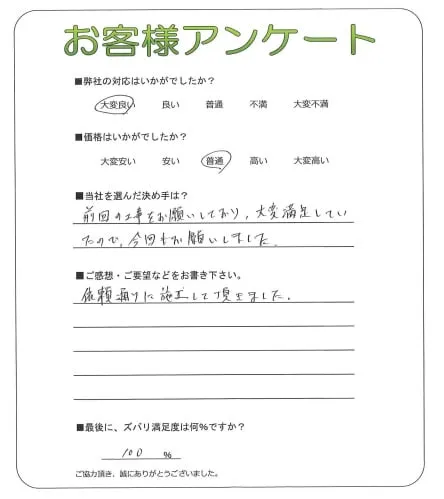 お客様アンケート
■弊社の対応はいかがでしたか？
大変良い 良い 普通 不満 大変不満
■価格はいかがでしたか？
大変安い 安い 普通 高い 大変高い
■当社を選んだ決め手は？
前回の工事をお願いしており，大変満足してい
たので，今回もお願いしました．
■ご感想・ご要望などをお書き下さい。
依頼通りに施工して頂きました．
■最後に、ズバリ満足度は何％ですか？
100 ％
ご協力頂き、誠にありがとうございました。